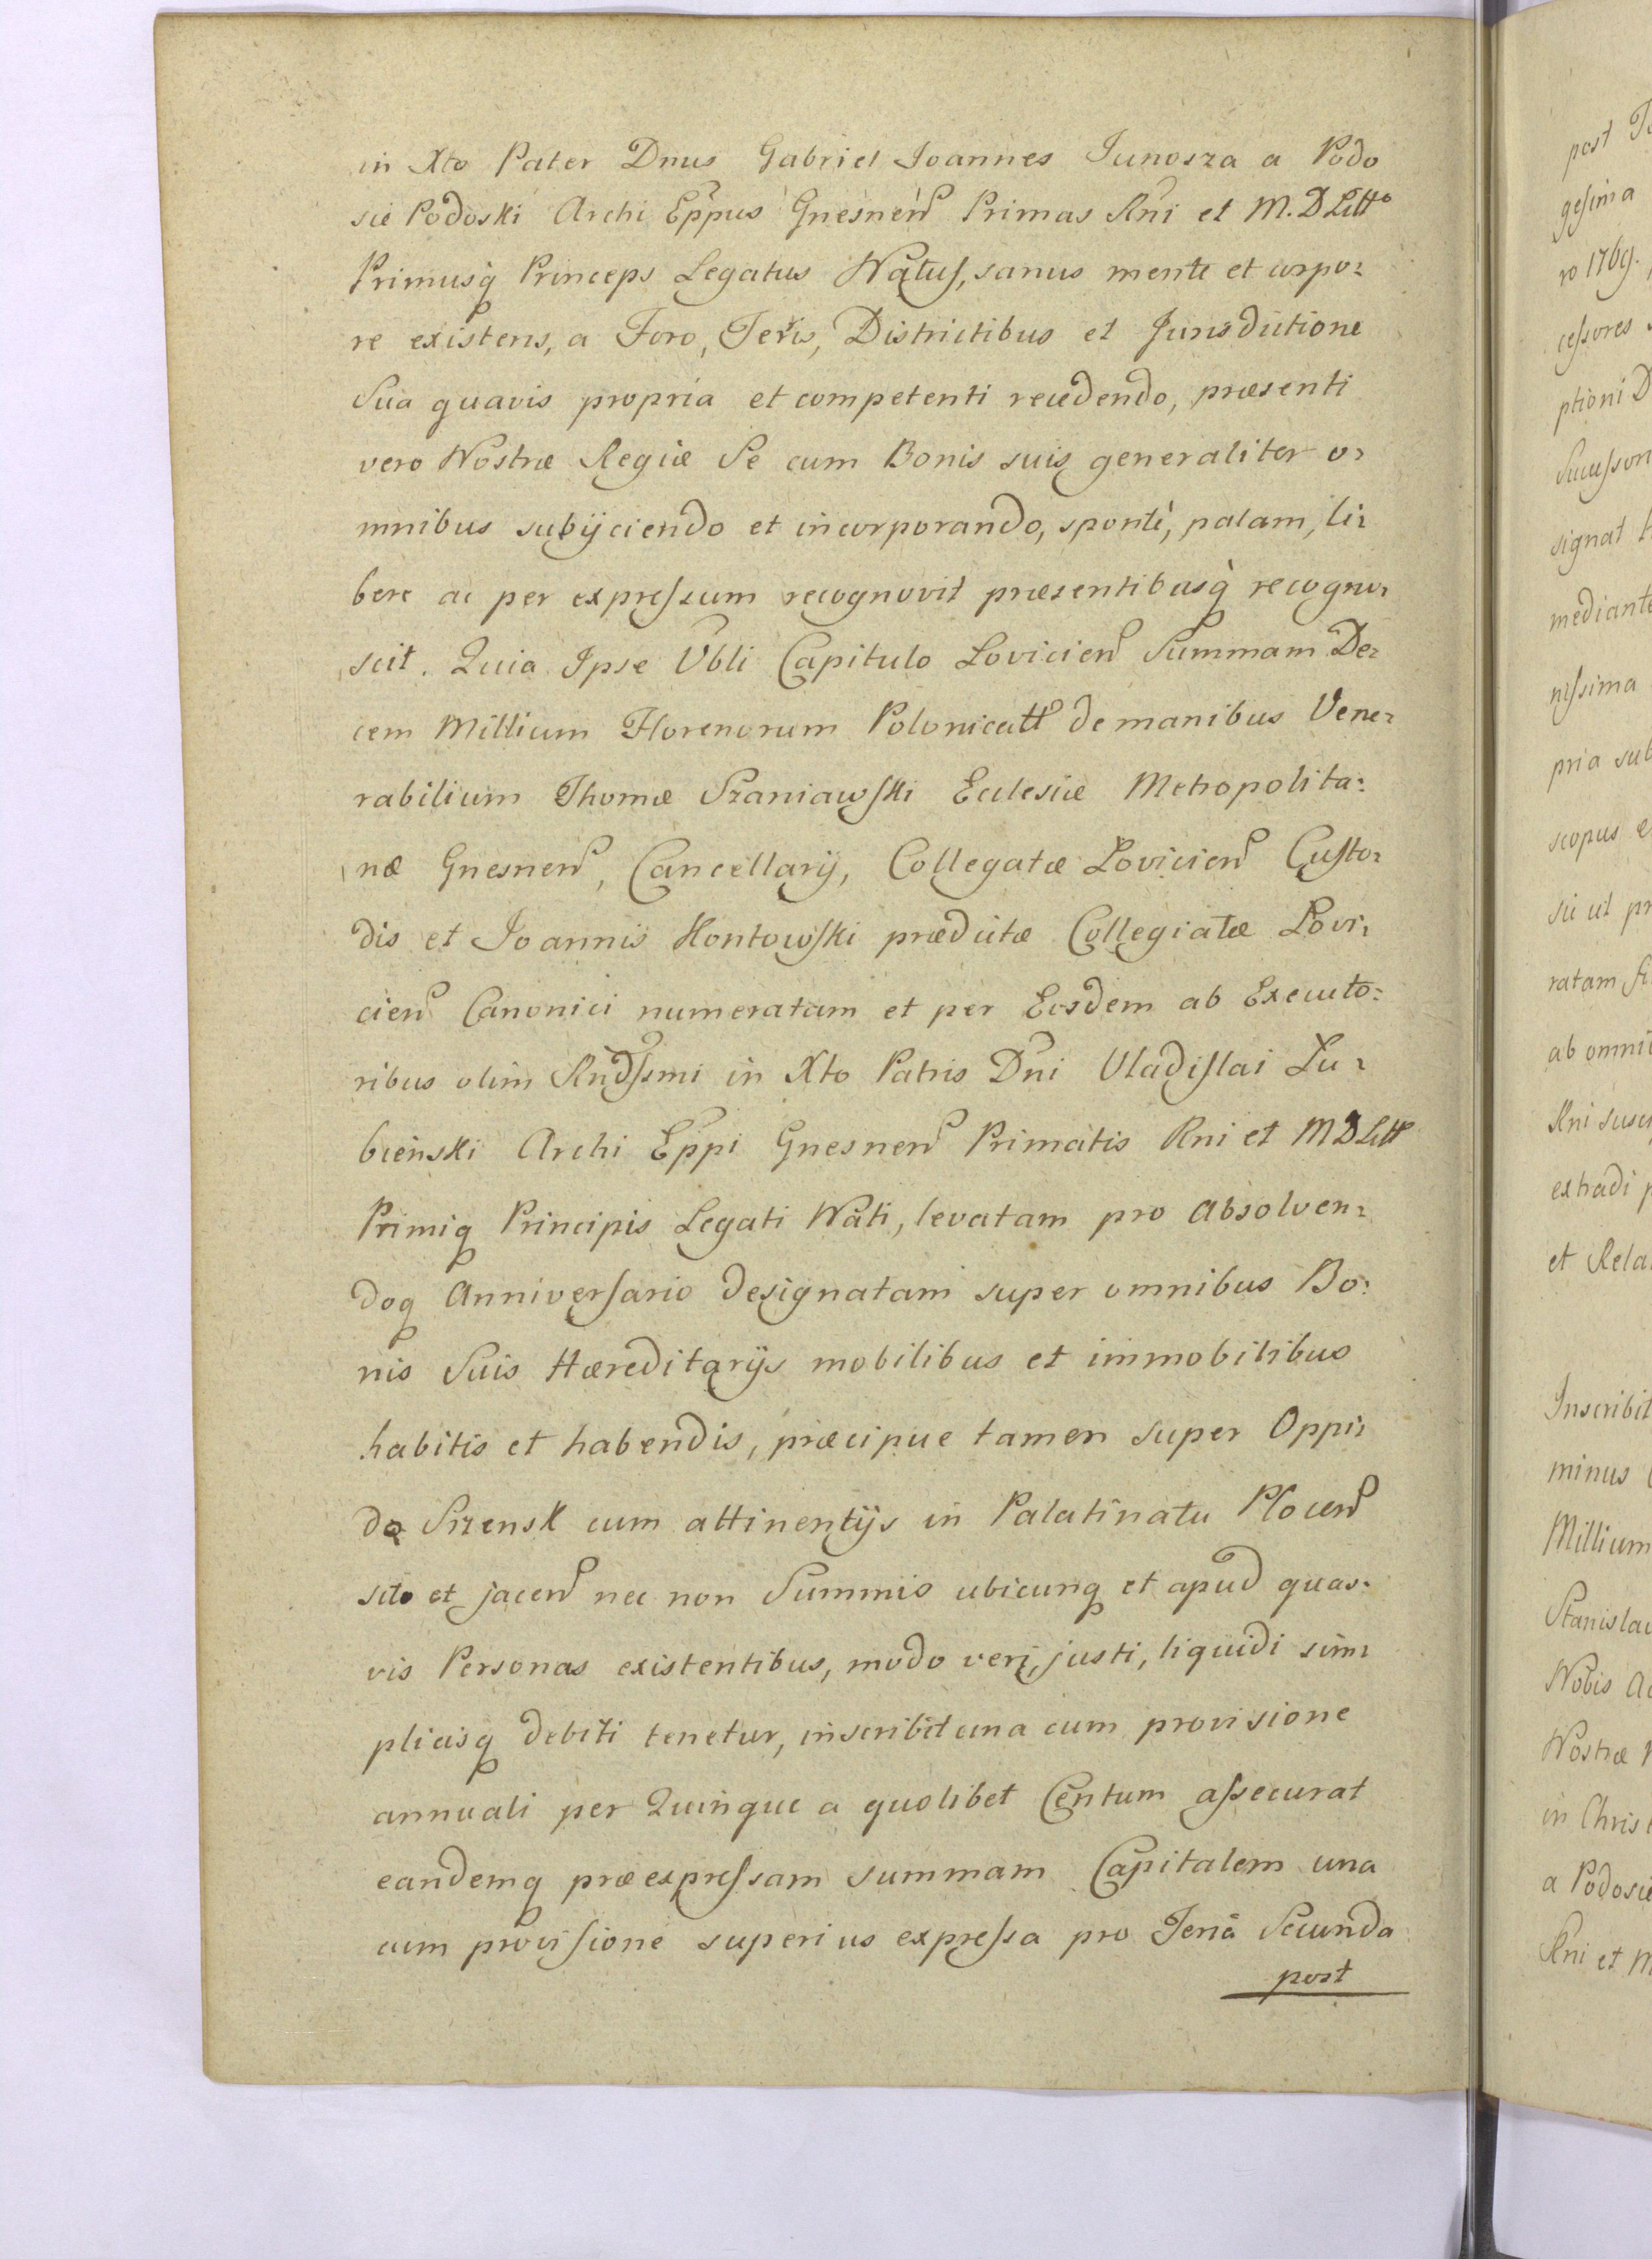 in Xto Pater Dnus Gabriel Joannes Junosza a Podo
sie Podoski Archi Eppus Gnesnen Primas Rni et M. D Litt
Primusq Princeps Legatus Natus, sanus mente et corpo-
re existens, a Foro, Terris, Districtibus et Jurisdictione
Sua quavis propria et competenti recedendo, præsenti
vero Nostræ Regiæ Se cum Bonis suis generaliter o-
mnibus subijciendo et incorporando, sponte, palam, li-
bere ac per expressum recognovit præsentibusq recogno-
scit. Quia Ipse Vbli Capitulo Lovicien Summam De-
cem Millium Florenorum Polonicatt de manibus Vene-
rabilium Thomæ Szaniawski Ecclesiæ Metropolita-
næ Gnesnen, Cancellarij, Collegatæ Lovicien Custo-
dis et Joannis Kontowski prædictæ Collegiatæ Lovi-
cien Canonici numeratam et per Eosdem ab Executo-
ribus olim Rndssmi in Xto Patris Dni Vladislai Lu-
bieński Archi Eppi Gnesnen Primatis Rni et M D Litt
Primiq Principis Legati Nati, levatam pro absolven-
doq Anniversario designatam super omnibus Bo-
nis Suis Hæreditarijs mobilibus et immobilibus
habitis et habendis, præcipue tamen super Oppi-
do Szrensk cum attinentijs in Palatinatu Plocen
sito et jacen nec non Summis ubicunq et apud quas-
vis Personas existentibus, modo veri, justi, liquidi sim-
plicisq debiti tenetur, inscribit una cum provisione
annuali per Quinque a quolibet Centum assecurat
eandemq præexpressam summam Capitalem una
cum provisione superius expressa pro Feria Secunda
post
post
gesima
ro 1769.
cessores
ptioni D
Successori
signat
mediante
nissima
pria sub
scopus e
sie ut pr
ratam
ab omni
Rni
extradi p
et Rela
Inscribit
minus
Millium
Stanislau
Nobis Ac
Nostræ
in Chris
a Podosie
Rni et M